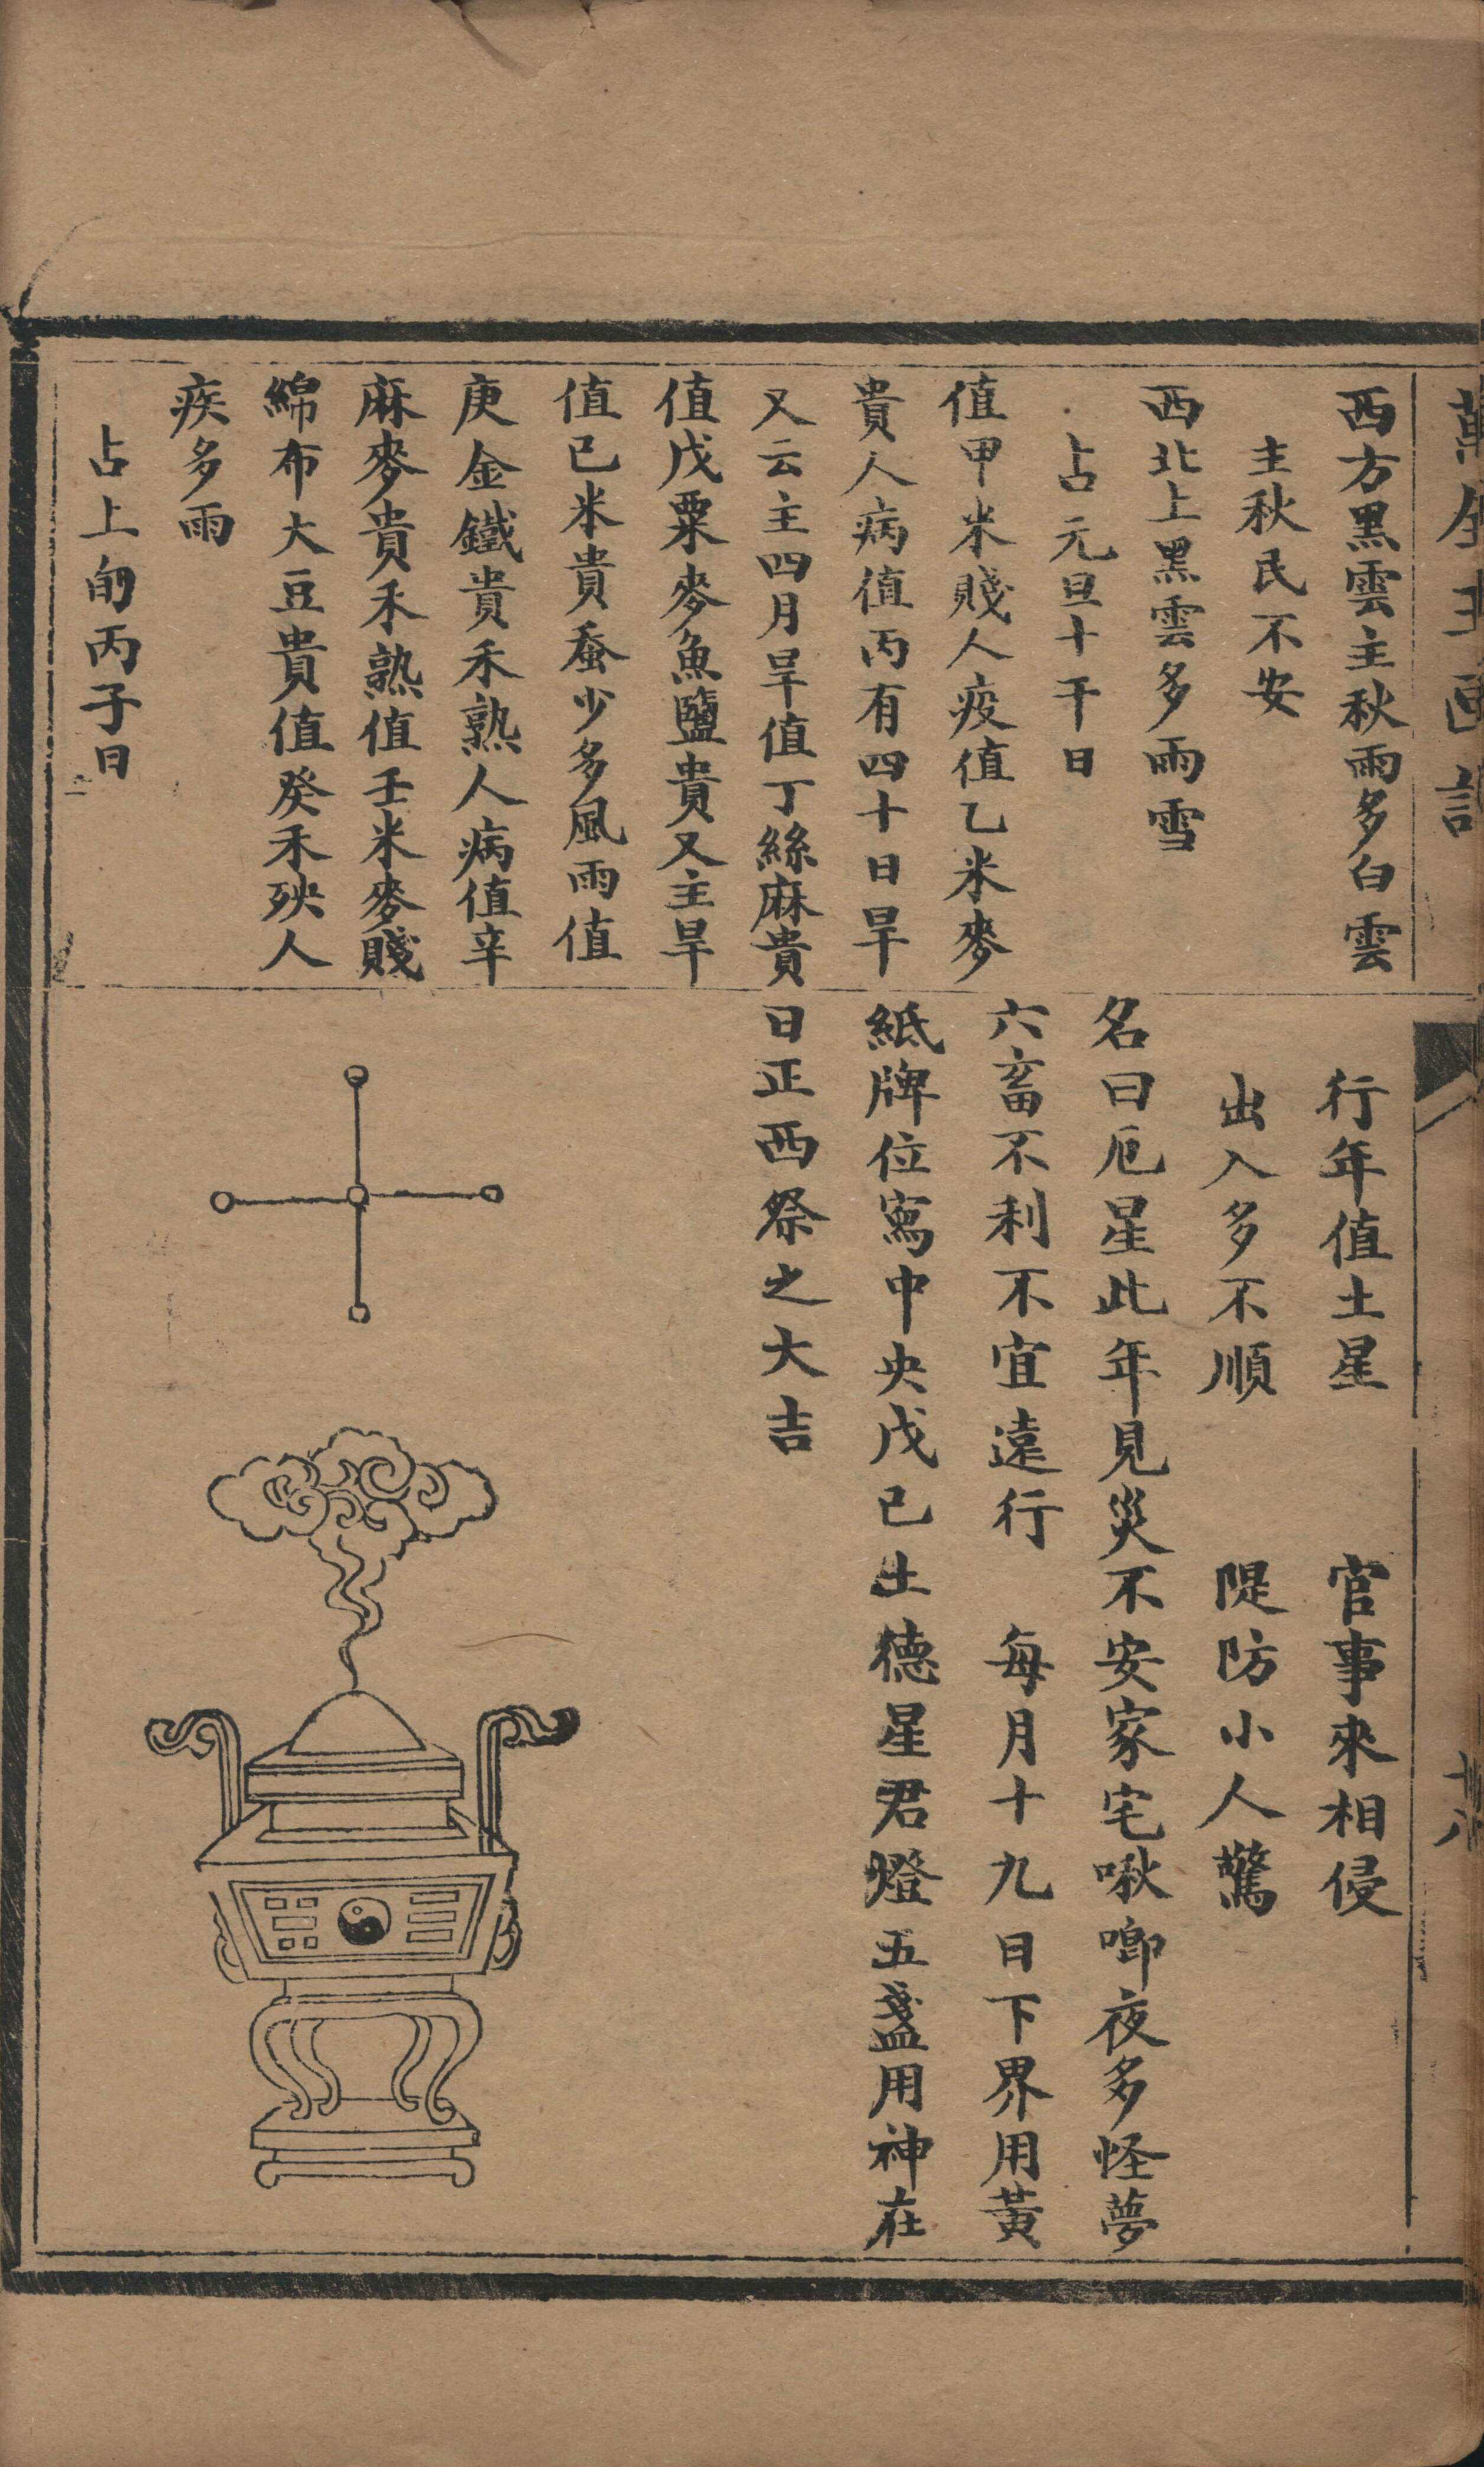 西方黑雲主秋雨多白雲
主秋民不安
西北上黑雲多雨雪
占元旦十干日
值甲米賤人疫值乙米麥
貴人病值丙有四十日旱
又云主四月旱值丁絲麻貴
值戊粟麥魚鹽貴又主旱
值己米貴蚕少多風雨值
庚金鐵貴禾熟人病值辛
麻麥貴禾熟值壬米麥賤
綿布大豆貴值癸禾殃人
疾多雨
占上旬丙子日
行年值土星 官事來相侵
出入多不順 隄防小人驚
名曰厄星此年見災不安家宅啾唧夜多怪夢
六畜不利不宜遠行 每月十九日下界用黃
紙牌位寫中央戊己土德星君燈五盞用神在
日正西祭之大吉